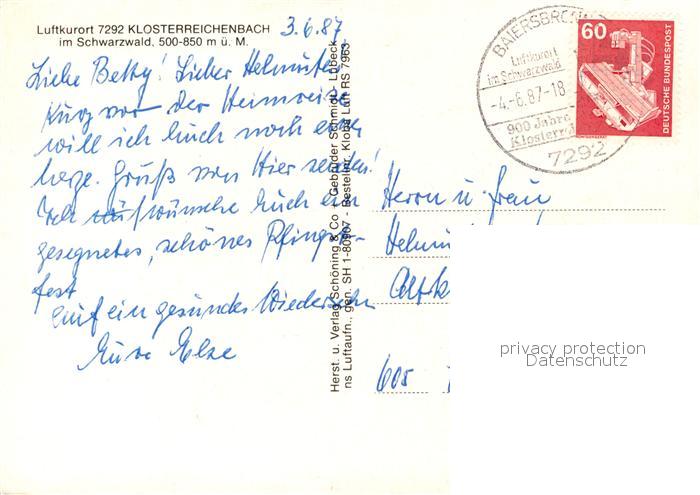 Luftkurort 7292 KLOSTERREICHENBACH
im Schwarzwald, 500-850 m ü. M.
3.6.87
Liebe Betty! Lieber Helmut
Kurz vor der Heimreise
will ich Euch noch einen
herzl. Gruß von Hier senden!
Ich wünsche Euch ein
gesegnetes, schönes Pfingst-
fest
auf ein gesundes Wiedersehn
Eure Else
Herst. u. Verlag Schöning & Co + Gebrüder Schmidt - Lübeck
ns Luftaufn., gen. SH 1-80907 - Bestellnr. Kloba Luft RS 7963
BAIERSBRONN
Luftkurort
im Schwarzwald
-4.-6.87-18
900 Jahre
Klosterrei
7292
60
DEUTSCHE BUNDESPOST
Herrn u. Frau
Helmu
605
privacy protection
Datenschutz